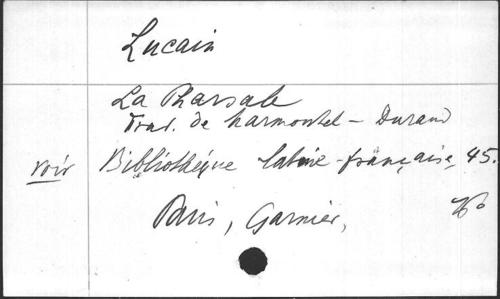 Lucain
La Pharsale
Trad. de Marmontel - Durand
voir Bibliothèque latine-française, 45.
Paris, Garnier,